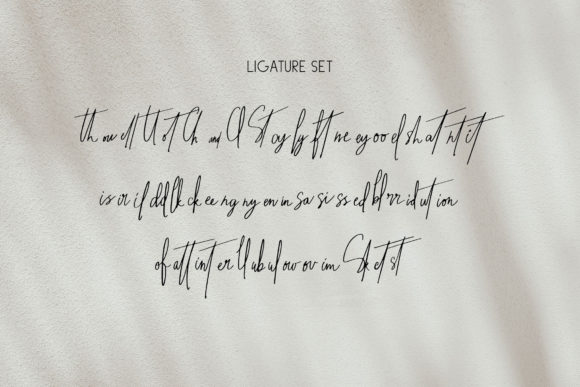 LIGATURE SET
th ow ell tt ot Ch and Cl St ay ly ft re ey oo el sh at nt it
is ir il dd Ck ck ee ng ny en in sa si ss ed bl rr id ut ion
of att int er ll ub ul ow ov im Sk et st